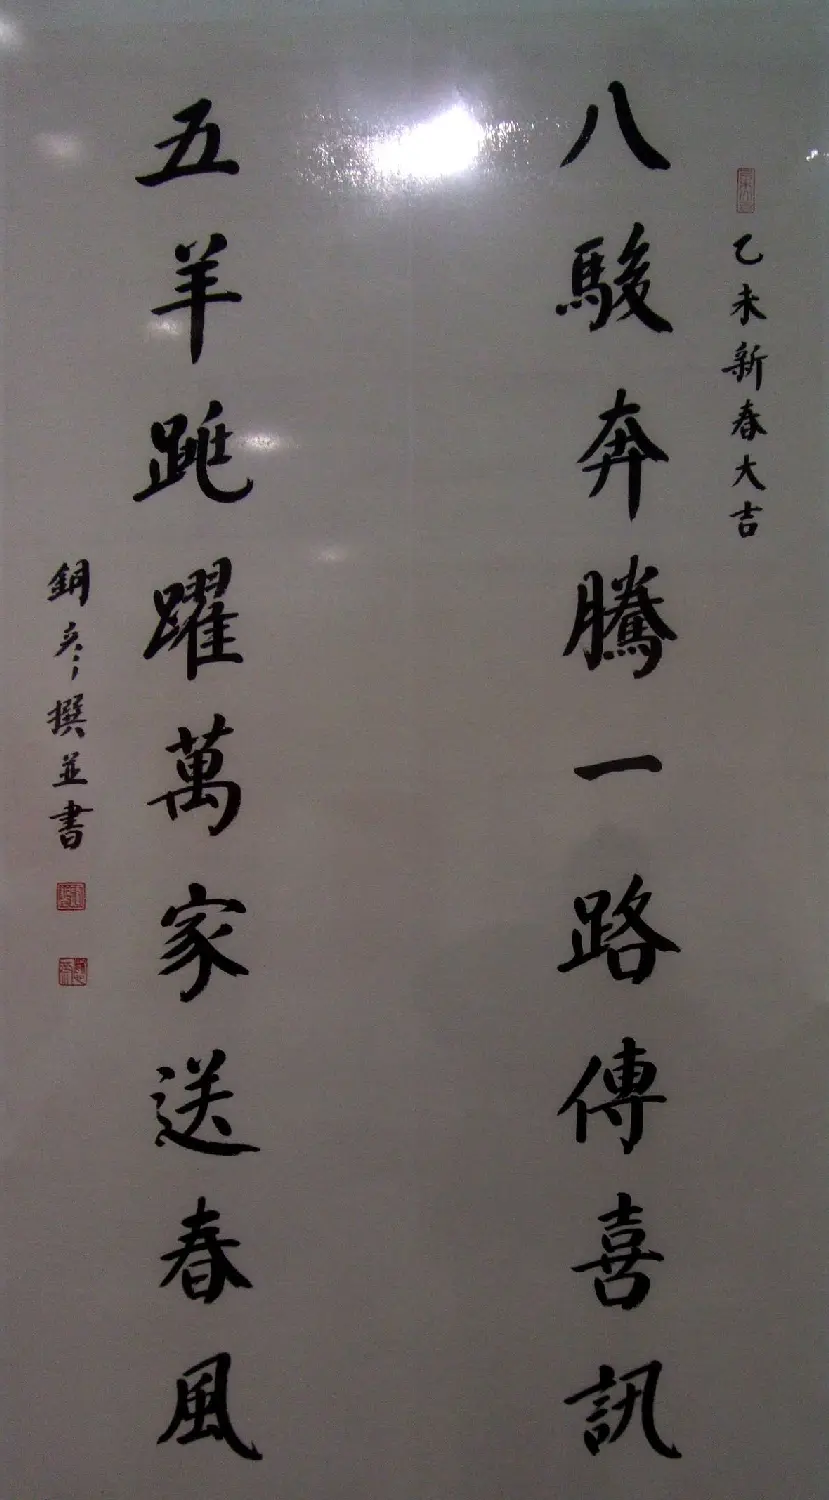 乙未新春大吉
八駿奔騰一路傳喜訊
五羊跳躍萬家送春風
銅撰並書